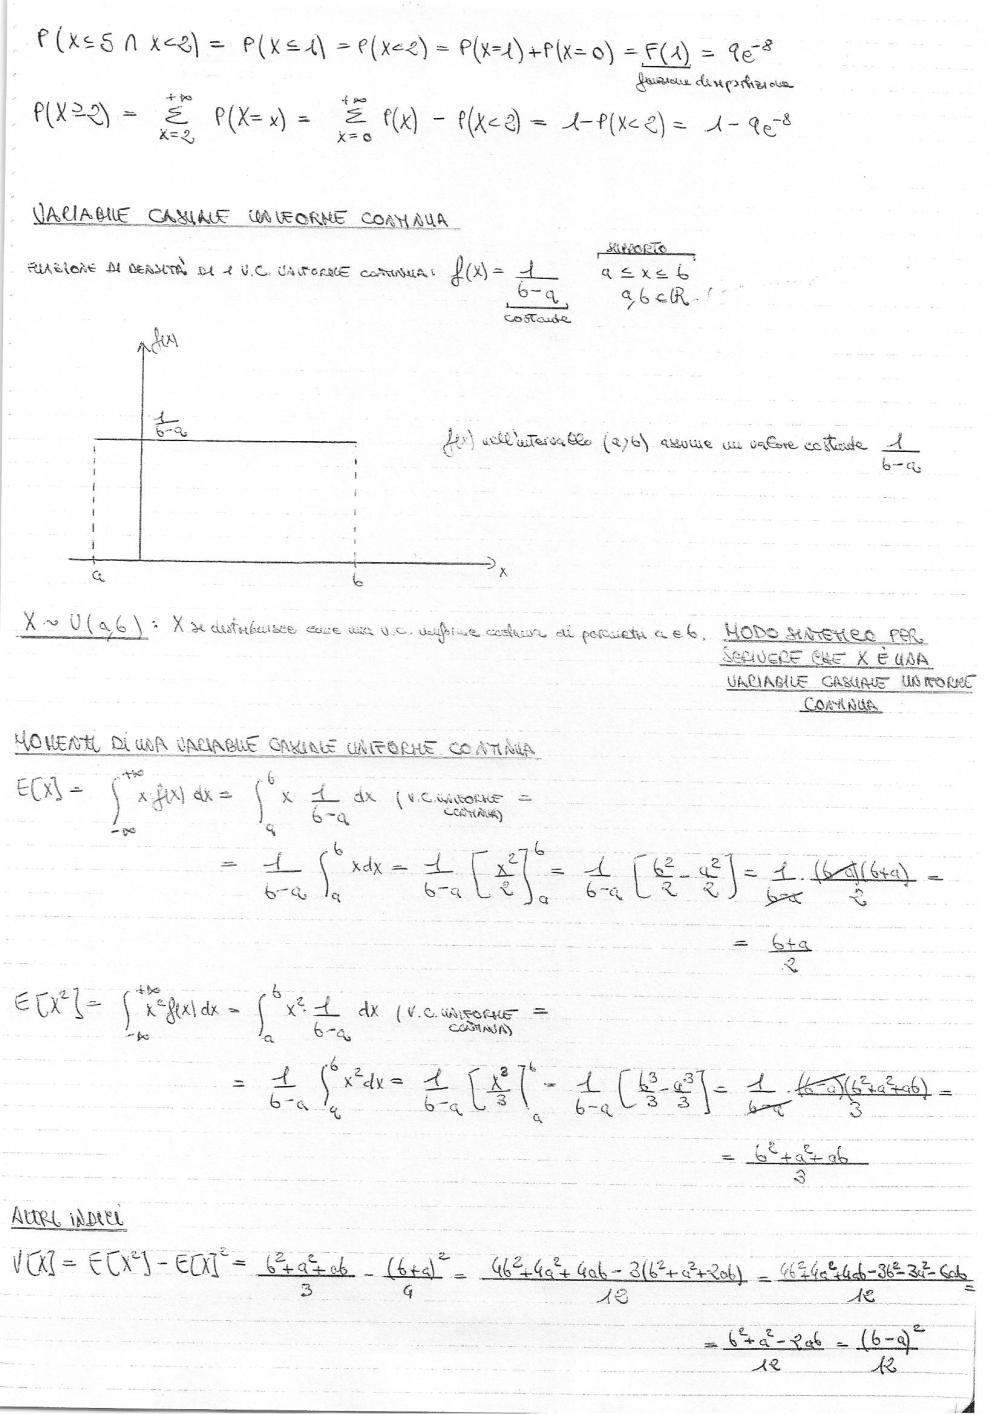 P(X≤5 ∩ X<2) = P(X≤1) = P(X<2) = P(X=1)+P(X=0) = F(1) = 9e⁻⁸
funzione di ripartizione
P(X≥2) = Σ_{X=2}^{+∞} P(X=x) = Σ_{X=0}^{+∞} P(x) - P(X<2) = 1-P(X<2) = 1-9e⁻⁸
VARIABILE CASUALE UNIFORME CONTINUA
SUPPORTO
FUNZIONE DI DENSITÀ DI 1 V.C. UNIFORME CONTINUA: f(x) = 1/(b-a) a ≤ x ≤ b
a,b ∈ ℝ
costante
f(x)
1/(b-a)
f(x) nell'intervallo (a,b) assume un valore costante 1/(b-a)
a b x
X ~ U(a,b): X si distribuisce come una v.c. uniforme continua di parametri a e b. MODO SINTETICO PER
SCRIVERE CHE X È UNA
VARIABILE CASUALE UNIFORME
CONTINUA
MOMENTI DI UNA VARIABILE CASUALE UNIFORME CONTINUA
E[X] = ∫_{-∞}^{+∞} x f(x) dx = ∫_a^b x 1/(b-a) dx (V.C. UNIFORME CONTINUA) =
= 1/(b-a) ∫_a^b x dx = 1/(b-a) [x²/2]_a^b = 1/(b-a) [b²/2 - a²/2] = 1/(b-a) · (b-a)(b+a)/2 =
= (b+a)/2
E[X²] = ∫_{-∞}^{+∞} x² f(x) dx = ∫_a^b x² · 1/(b-a) dx (V.C. UNIFORME CONTINUA) =
= 1/(b-a) ∫_a^b x² dx = 1/(b-a) [x³/3]_a^b = 1/(b-a) [b³/3 - a³/3] = 1/(b-a) · (b-a)(b²+a²+ab)/3 =
= (b²+a²+ab)/3
ALTRI INDICI
V[X] = E[X²] - E[X]² = (b²+a²+ab)/3 - (b+a)²/4 = (4b²+4a²+4ab-3(b²+a²+2ab))/12 = (4b²+4a²+4ab-3b²-3a²-6ab)/12 =
= (b²+a²-2ab)/12 = (b-a)²/12